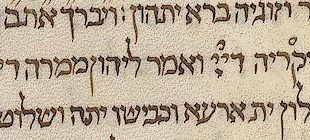 ר וזוגיה ברא יתהון: ויברך אתם
יקריה דייי ואמר ליהון ממרה די
לון ית ארעא וכבישו יתה ושלוט